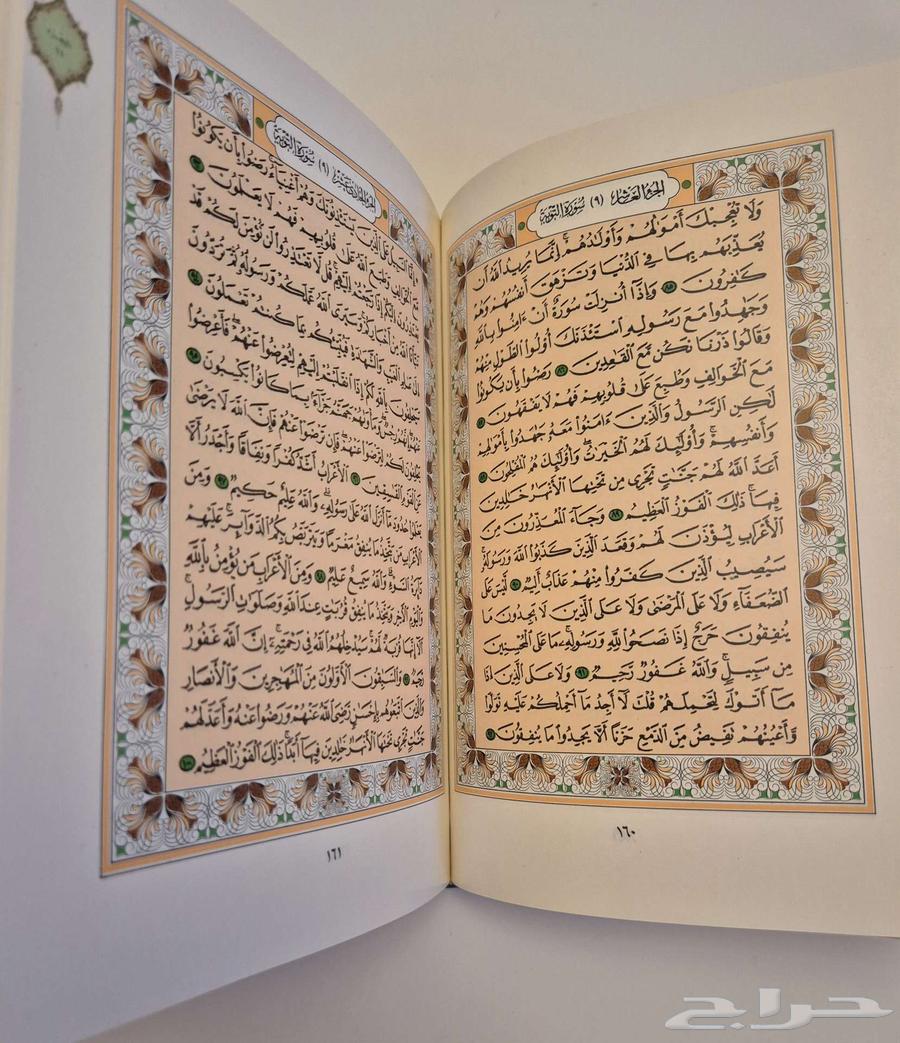 الجزء العاشر (٩) سورة التوبة
وَلَا تُعْجِبْكَ أَمْوَٰلُهُمْ وَأَوْلَٰدُهُمْ ۚ إِنَّمَا يُرِيدُ ٱللَّهُ أَن
يُعَذِّبَهُم بِهَا فِى ٱلدُّنْيَا وَتَزْهَقَ أَنفُسُهُمْ وَهُمْ
كَٰفِرُونَ ٨٥ وَإِذَآ أُنزِلَتْ سُورَةٌ أَنْ ءَامِنُوا۟ بِٱللَّهِ
وَجَٰهِدُوا۟ مَعَ رَسُولِهِ ٱسْتَـْٔذَنَكَ أُو۟لُوا۟ ٱلطَّوْلِ مِنْهُمْ
وَقَالُوا۟ ذَرْنَا نَكُن مَّعَ ٱلْقَٰعِدِينَ ٨٦ رَضُوا۟ بِأَن يَكُونُوا۟
مَعَ ٱلْخَوَالِفِ وَطُبِعَ عَلَىٰ قُلُوبِهِمْ فَهُمْ لَا يَفْقَهُونَ ٨٧
لَٰكِنِ ٱلرَّسُولُ وَٱلَّذِينَ ءَامَنُوا۟ مَعَهُۥ جَٰهَدُوا۟ بِأَمْوَٰلِهِمْ
وَأَنفُسِهِمْ ۚ وَأُو۟لَٰٓئِكَ لَهُمُ ٱلْخَيْرَٰتُ ۖ وَأُو۟لَٰٓئِكَ هُمُ ٱلْمُفْلِحُونَ ٨٨
أَعَدَّ ٱللَّهُ لَهُمْ جَنَّٰتٍ تَجْرِى مِن تَحْتِهَا ٱلْأَنْهَٰرُ خَٰلِدِينَ
فِيهَا ۚ ذَٰلِكَ ٱلْفَوْزُ ٱلْعَظِيمُ ٨٩ وَجَآءَ ٱلْمُعَذِّرُونَ مِنَ
ٱلْأَعْرَابِ لِيُؤْذَنَ لَهُمْ وَقَعَدَ ٱلَّذِينَ كَذَبُوا۟ ٱللَّهَ وَرَسُولَهُۥ ۚ
سَيُصِيبُ ٱلَّذِينَ كَفَرُوا۟ مِنْهُمْ عَذَابٌ أَلِيمٌ ٩٠ لَّيْسَ عَلَى
ٱلضُّعَفَآءِ وَلَا عَلَى ٱلْمَرْضَىٰ وَلَا عَلَى ٱلَّذِينَ لَا يَجِدُونَ مَا
يُنفِقُونَ حَرَجٌ إِذَا نَصَحُوا۟ لِلَّهِ وَرَسُولِهِۦ ۚ مَا عَلَى ٱلْمُحْسِنِينَ
مِن سَبِيلٍ ۚ وَٱللَّهُ غَفُورٌ رَّحِيمٌ ٩١ وَلَا عَلَى ٱلَّذِينَ إِذَا
مَآ أَتَوْكَ لِتَحْمِلَهُمْ قُلْتَ لَآ أَجِدُ مَآ أَحْمِلُكُمْ عَلَيْهِ تَوَلَّوا۟
وَّأَعْيُنُهُمْ تَفِيضُ مِنَ ٱلدَّمْعِ حَزَنًا أَلَّا يَجِدُوا۟ مَا يُنفِقُونَ ٩٢
١٦٠
الجزء الحادي عشر (٩) سورة التوبة
إِنَّمَا ٱلسَّبِيلُ عَلَى ٱلَّذِينَ يَسْتَـْٔذِنُونَكَ وَهُمْ أَغْنِيَآءُ ۚ رَضُوا۟ بِأَن يَكُونُوا۟
مَعَ ٱلْخَوَالِفِ وَطَبَعَ ٱللَّهُ عَلَىٰ قُلُوبِهِمْ فَهُمْ لَا يَعْلَمُونَ ٩٣
يَعْتَذِرُونَ إِلَيْكُمْ إِذَا رَجَعْتُمْ إِلَيْهِمْ ۚ قُل لَّا تَعْتَذِرُوا۟ لَن نُّؤْمِنَ لَكُمْ قَدْ
نَبَّأَنَا ٱللَّهُ مِنْ أَخْبَارِكُمْ ۚ وَسَيَرَى ٱللَّهُ عَمَلَكُمْ وَرَسُولُهُۥ ثُمَّ تُرَدُّونَ
إِلَىٰ عَٰلِمِ ٱلْغَيْبِ وَٱلشَّهَٰدَةِ فَيُنَبِّئُكُم بِمَا كُنتُمْ تَعْمَلُونَ ٩٤
سَيَحْلِفُونَ بِٱللَّهِ لَكُمْ إِذَا ٱنقَلَبْتُمْ إِلَيْهِمْ لِتُعْرِضُوا۟ عَنْهُمْ ۖ فَأَعْرِضُوا۟
عَنْهُمْ ۖ إِنَّهُمْ رِجْسٌ ۖ وَمَأْوَىٰهُمْ جَهَنَّمُ جَزَآءًۢ بِمَا كَانُوا۟ يَكْسِبُونَ ٩٥
يَحْلِفُونَ لَكُمْ لِتَرْضَوْا۟ عَنْهُمْ ۖ فَإِن تَرْضَوْا۟ عَنْهُمْ فَإِنَّ ٱللَّهَ لَا يَرْضَىٰ
عَنِ ٱلْقَوْمِ ٱلْفَٰسِقِينَ ٩٦ ٱلْأَعْرَابُ أَشَدُّ كُفْرًا وَنِفَاقًا وَأَجْدَرُ أَلَّا
يَعْلَمُوا۟ حُدُودَ مَآ أَنزَلَ ٱللَّهُ عَلَىٰ رَسُولِهِۦ ۗ وَٱللَّهُ عَلِيمٌ حَكِيمٌ ٩٧ وَمِنَ
ٱلْأَعْرَابِ مَن يَتَّخِذُ مَا يُنفِقُ مَغْرَمًا وَيَتَرَبَّصُ بِكُمُ ٱلدَّوَآئِرَ ۚ عَلَيْهِمْ
دَآئِرَةُ ٱلسَّوْءِ ۗ وَٱللَّهُ سَمِيعٌ عَلِيمٌ ٩٨ وَمِنَ ٱلْأَعْرَابِ مَن يُؤْمِنُ بِٱللَّهِ
وَٱلْيَوْمِ ٱلْءَاخِرِ وَيَتَّخِذُ مَا يُنفِقُ قُرُبَٰتٍ عِندَ ٱللَّهِ وَصَلَوَٰتِ ٱلرَّسُولِ ۚ
أَلَآ إِنَّهَا قُرْبَةٌ لَّهُمْ ۚ سَيُدْخِلُهُمُ ٱللَّهُ فِى رَحْمَتِهِۦٓ ۗ إِنَّ ٱللَّهَ غَفُورٌ
رَّحِيمٌ ٩٩ وَٱلسَّٰبِقُونَ ٱلْأَوَّلُونَ مِنَ ٱلْمُهَٰجِرِينَ وَٱلْأَنصَارِ
وَٱلَّذِينَ ٱتَّبَعُوهُم بِإِحْسَٰنٍ رَّضِىَ ٱللَّهُ عَنْهُمْ وَرَضُوا۟ عَنْهُ وَأَعَدَّ لَهُمْ
جَنَّٰتٍ تَجْرِى تَحْتَهَا ٱلْأَنْهَٰرُ خَٰلِدِينَ فِيهَآ أَبَدًا ۚ ذَٰلِكَ ٱلْفَوْزُ ٱلْعَظِيمُ ١٠٠
١٦١
الجزء
١١
حراج